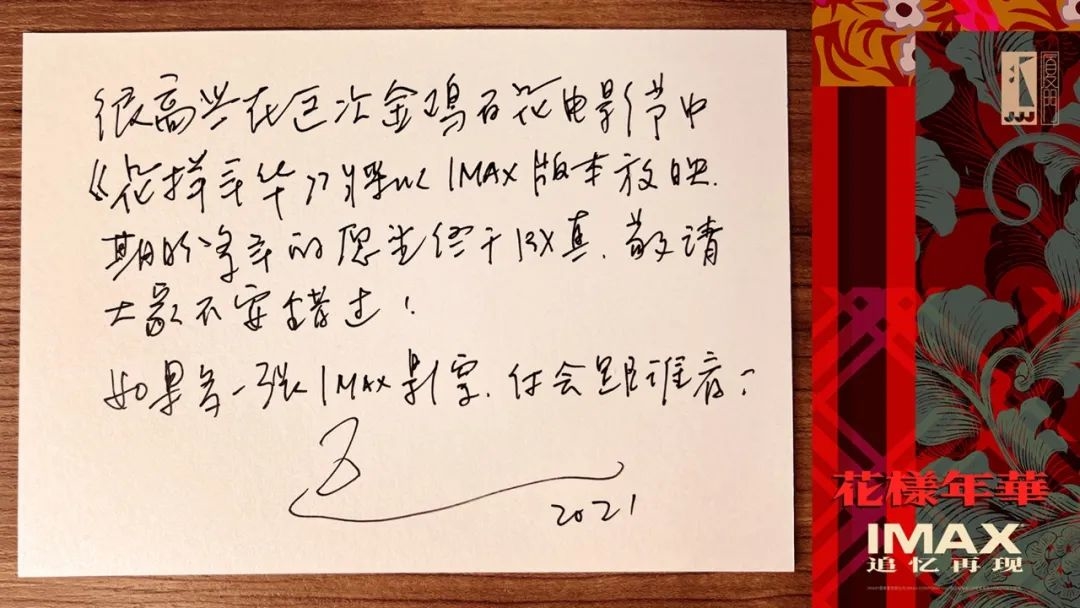 很高兴在这次金鸡百花电影节中
《花样年华》将以IMAX版本放映.
期盼多年的愿望终于成真. 敬请
大家不要错过!
如果多一张IMAX影票. 你会跟谁看?
2021
花樣年華
IMAX
追忆再现